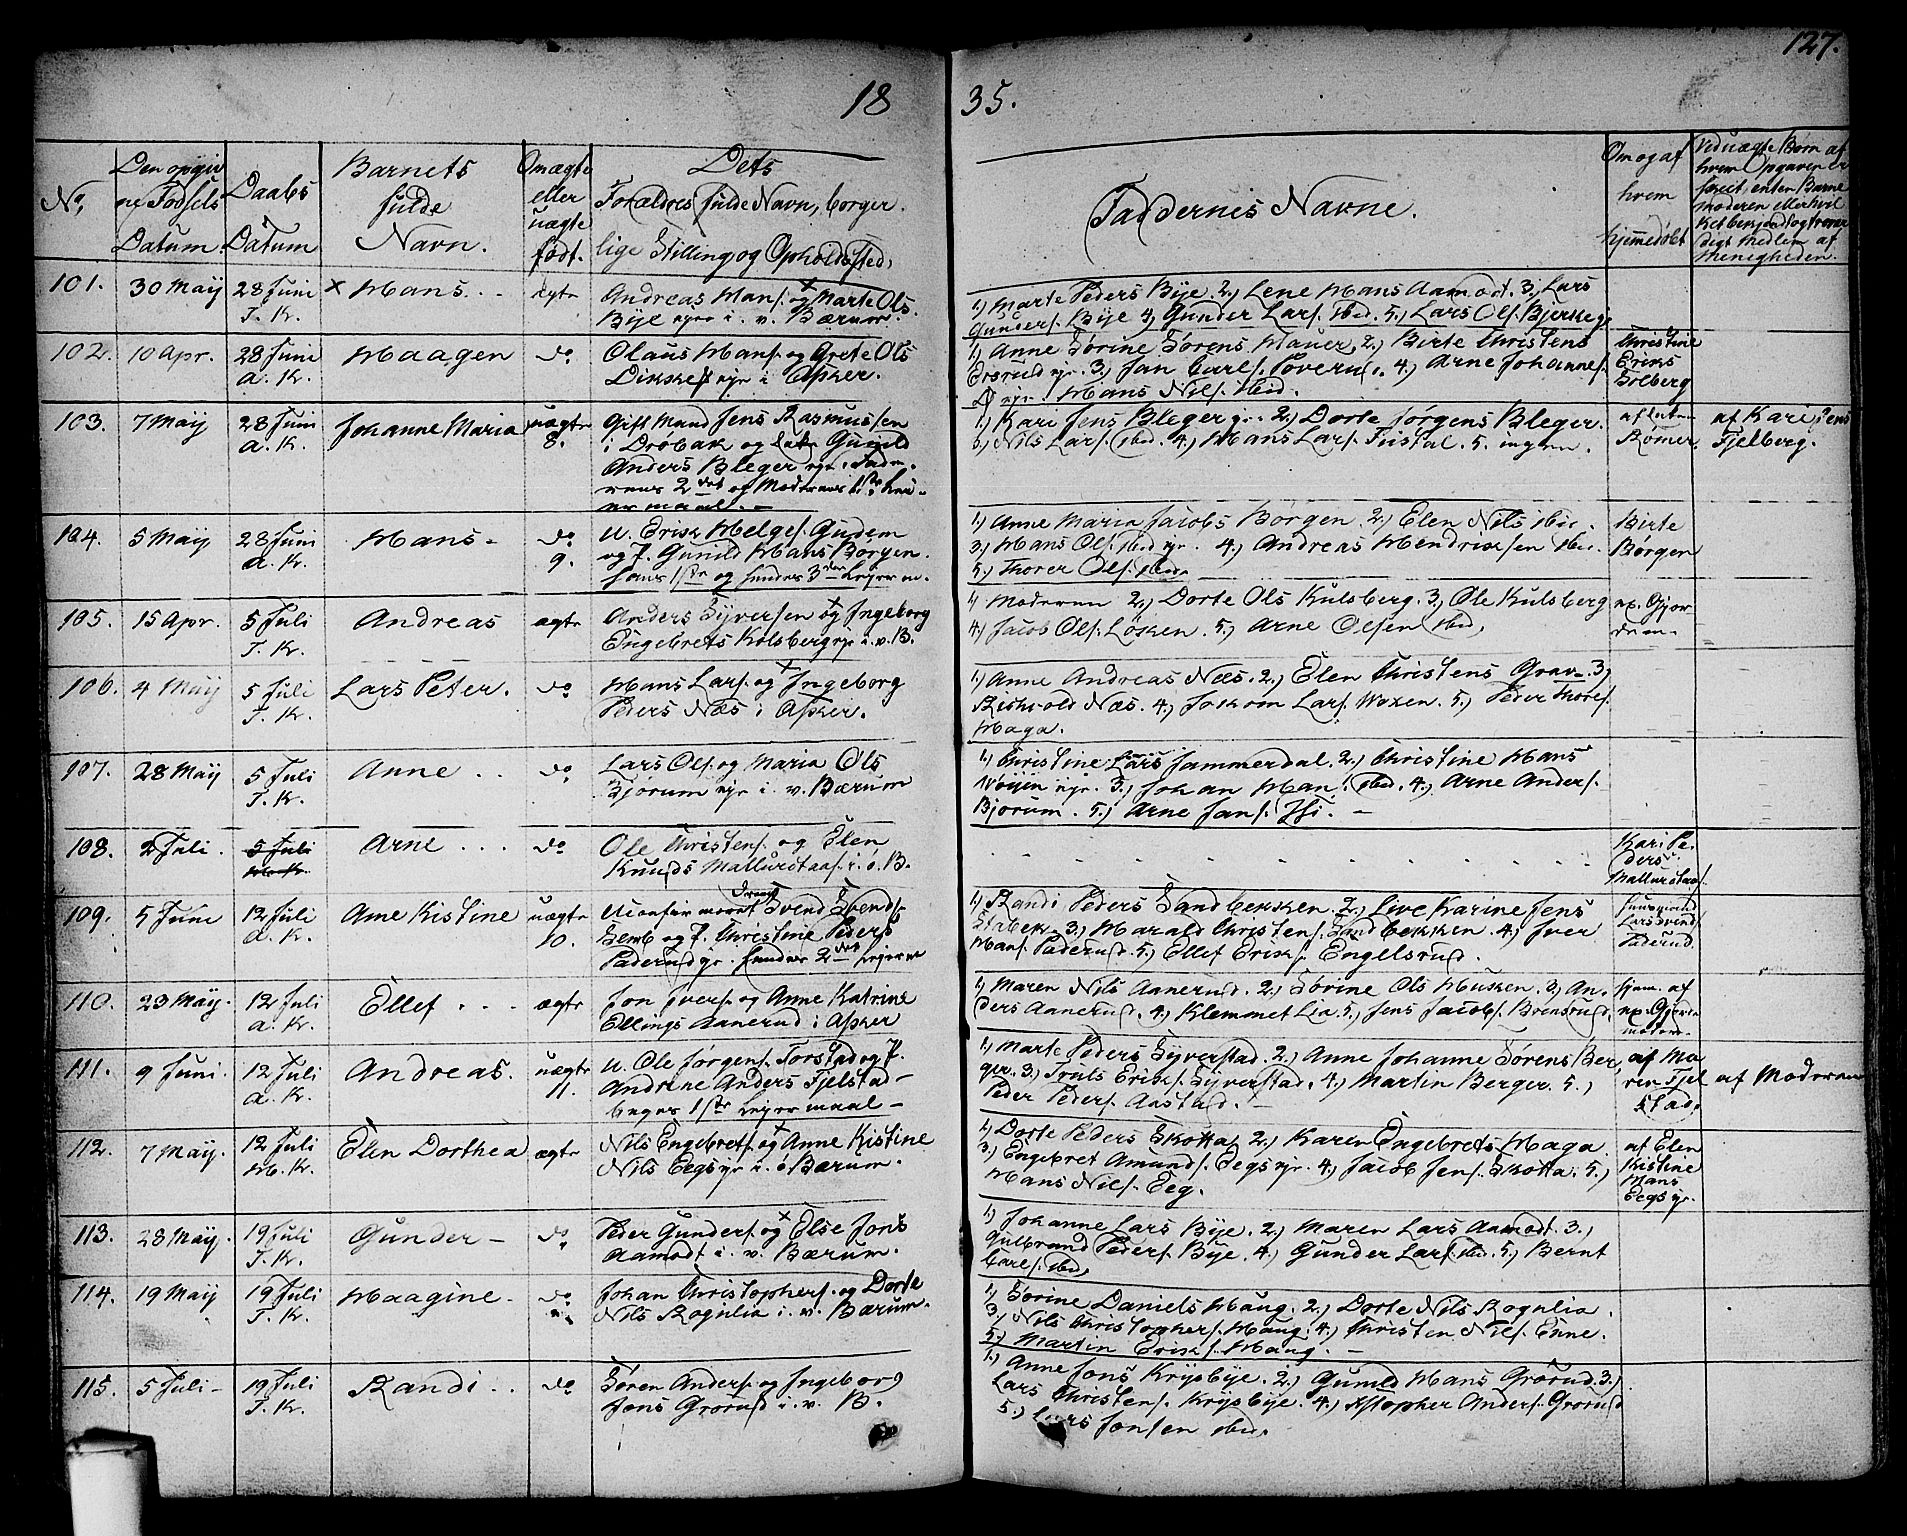 127.
18 35.
No,
Den opgiv
ne Fødsels
Datum.
Daabs
Datum
Barnets
fulde
Navn.
Om ægte
eller
uægte
født.
Dets
Forældres fulde Navn, borger
lige Stilling og Opholdssted,
Faddernes Navne.
Om og af
hvem
hjemmedøbt
Ved uægte Børn af
hvem Opgaven er
skeet, enten Barne
moderen eller hvil
ket bekjendt og trovær
digt Medlem af
Menigheden.
101. 30 May 28 Juni × Hans . . ægte Andreas Hans. og Marte Ols
T. K. Bye eyer i. v. Bærum.
1.) Marte Peders Bye. 2.) Lene Hans Aamodt. 3.) Lars
Gunders. Bye 4.) Gunder Lars. ibid. 5.) Lars Ols.
102. 10 Apr. 28 Juni Haagen do Olaus Hans. og Grete Ols
a. K. eyr i Asker.
1.) Anne Sørine Sørens Hauer, 2.) Birte Christens
eyr. 3.) Jan Carls. 4.) Arne Johannes.
eyr. Hans Nils. ibid.
Christine
Eriks
Solberg
103. 7 May 28 Juni Johanne Maria uægte Gift Mand Jens Rasmussen
a. K. 8. i Drøbak og Gunild
Anders Bleger eyr. Fade-
rens 2det og Moderens 1ste Lei-
ermaal. –
1.) Kari Jens Bleger 2.) Dorte Jørgens Bleger.
Nils Lars. ibid. 4.) Hans Lars. 5. ingen.
af
Rømer
af Kari Jens
Fjelberg.
104. 5 May 28 Juni Hans – do U. Erik Helges. Gudem
a. K. 9. og P. Gunild Hans Borgen.
hans 1ste og hendes 3die Lejerm.
1.) Anne Maria Jacobs Børgen. 2.) Elen Nils ibid.
3.) Hans Ols. ibid eyr. 4.) Andreas Hendriksen ibid.
5.) Thorer Ols. ibid.
Birte
Børgen
105. 15 Apr. 5 Juli Andreas ægte Anders Syversen og Ingeborg
T. K. Engebrets Kolsberg eyr i. v. B.
1. Moderen 2.) Dorte Ols Kulsberg. 3.) Ole Kulsberg
4.) Jacob Ols. Løken. 5.) Arne Olsen ibid,
ex. Gjor
dem.
106. 4 May 5 Juli Lars Peter. do Hans Lars. og Ingeborg
T. K. Peders Næs i Asker.
1.) Anne Andreas Næs. 2.) Elen Christens Grav. 3.)
Næs. 4.) Joakom Lars. Woxen. 5.) Peder Thores.
Haga.
107. 28 May 5 Juli Anne . . do Lars Ols. og Maria Ols
T. K. Bjorum eyr i. v. Bærum
1.) Christine Lars Jammerdal. 2.) Christine Hans
eyr. 3.) Johan Han. ibid. 4.) Arne Anders.
Bjorum. 5.) Arne Jans. –
108. 2 Juli. 5 Juli Arne . . . do Ole Christens. og Elen
Knuds Mallurstaas. i. ø. B.
Kari Pe-
ders
Mallurstaas.
109. 5 Juni 12 Juli Ane Kistine uægte Uconfirmeret Dreng Svend Svends.
a. K. 10. Semb og P. Christine Peders
Paderud eyr. hendes 2det Lejerm
1.) Randi Peders Sandbekken. 2.) Live Karine Jens
Stabek. 3.) Harald Christens. Sandbekken. 4.) Iver
Hans. Paderud. 5.) Ellef Eriks. Engelsrud.
Huusmand
Lars Svends
Paderud.
110. 23 May. 12 Juli Ellef . . . ægte Jon Ivers. og Anne Katrine
a. K. Ellings Aanerud i Asker
1.) Maren Nils Aanerud. 2.) Sørine Ols Husken. 3.) An-
ders Aanerud. 4.) Klemmet Lia. 5.) Jens Jacobs. Brensrud.
hjem. af
ex. Gjorde
moderen.
111. 9 Juni. 12 Juli Andreas. uægte U. Ole Jørgens. Torstad og P.
a. K. 11. Andrine Anders Fjelstad –
beges 1ste Lejermaal –
1.) Marte Peders Syverstad. 2.) Anne Johanne Sørens Ber,
ger. 3.) Truls Eriks. Syverstad. 4.) Martin Berger. 5.)
Peder Peders. Aastad. –
af Ma
ren Fjel
stad.
af Moderen
112. 7 May. 12 Juli Elen Dorthea ægte Nils Engebrets. og Anne Kistine
H. K. Nils Eegs eyr i. ø Bærum.
1.) Dorte Peders Skotta. 2.) Karen Engebrets Haga.
3.) Engebret Amunds. Eegs eyr. 4.) Jacob Jens. Skotta. 5.)
Hans Nils. Eeg.
af Elen
Kistine
Hans
Eegs eyr.
113. 28 May. 19 Juli Gunder – do Peder Gunders. og Else Jons
T. K. Aamodt i. v. Bærum.
1.) Johanne Lars Bye. 2.) Maren Lars Aamodt. 3.)
Gulbrand Peders. Bye. 4.) Gunder Lars. ibid. 5.) Bernt
Carls. ibid,
114. 19 May 19 Juli Haagine – do Johan Christophers. og Dorte
T. K. Nils Rognlia i. v. Bærum.
1.) Sørine Daniels Haug. 2.) Dorte Nils Rognlia.
3.) Nils Christophers. Haug. 4.) Christen Nils. Enne.
5.) Martin Eriks. Haug. –
115. 5 Juli – 19 Juli Randi . . do Søren Anders. og Ingeborg
T. K. Jons Grorud i. v. B.
1.) Anne Jons Krysbye. 2.) Gunild Hans Grorud. 3.)
Lars Christens. Krysbye. 4.) Kstopher Anders. Grorud
5.) Lars Jonsen ibid.